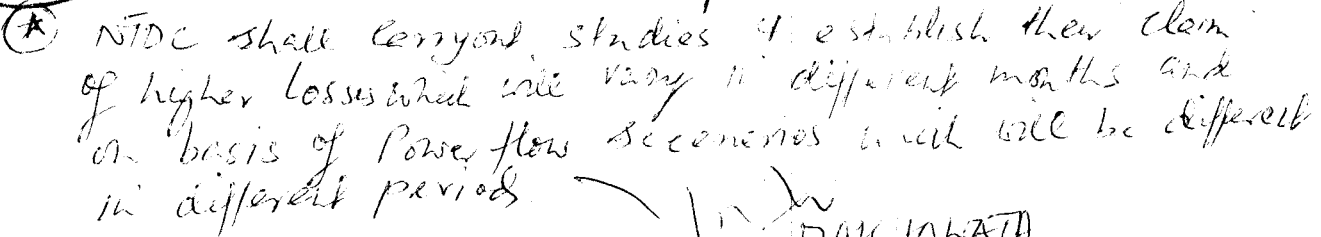 (A) NTDC shall carryout studies & establish their claim
of higher losses which will vary in different months and
on basis of Power flow secenerios which will be different
in different periods